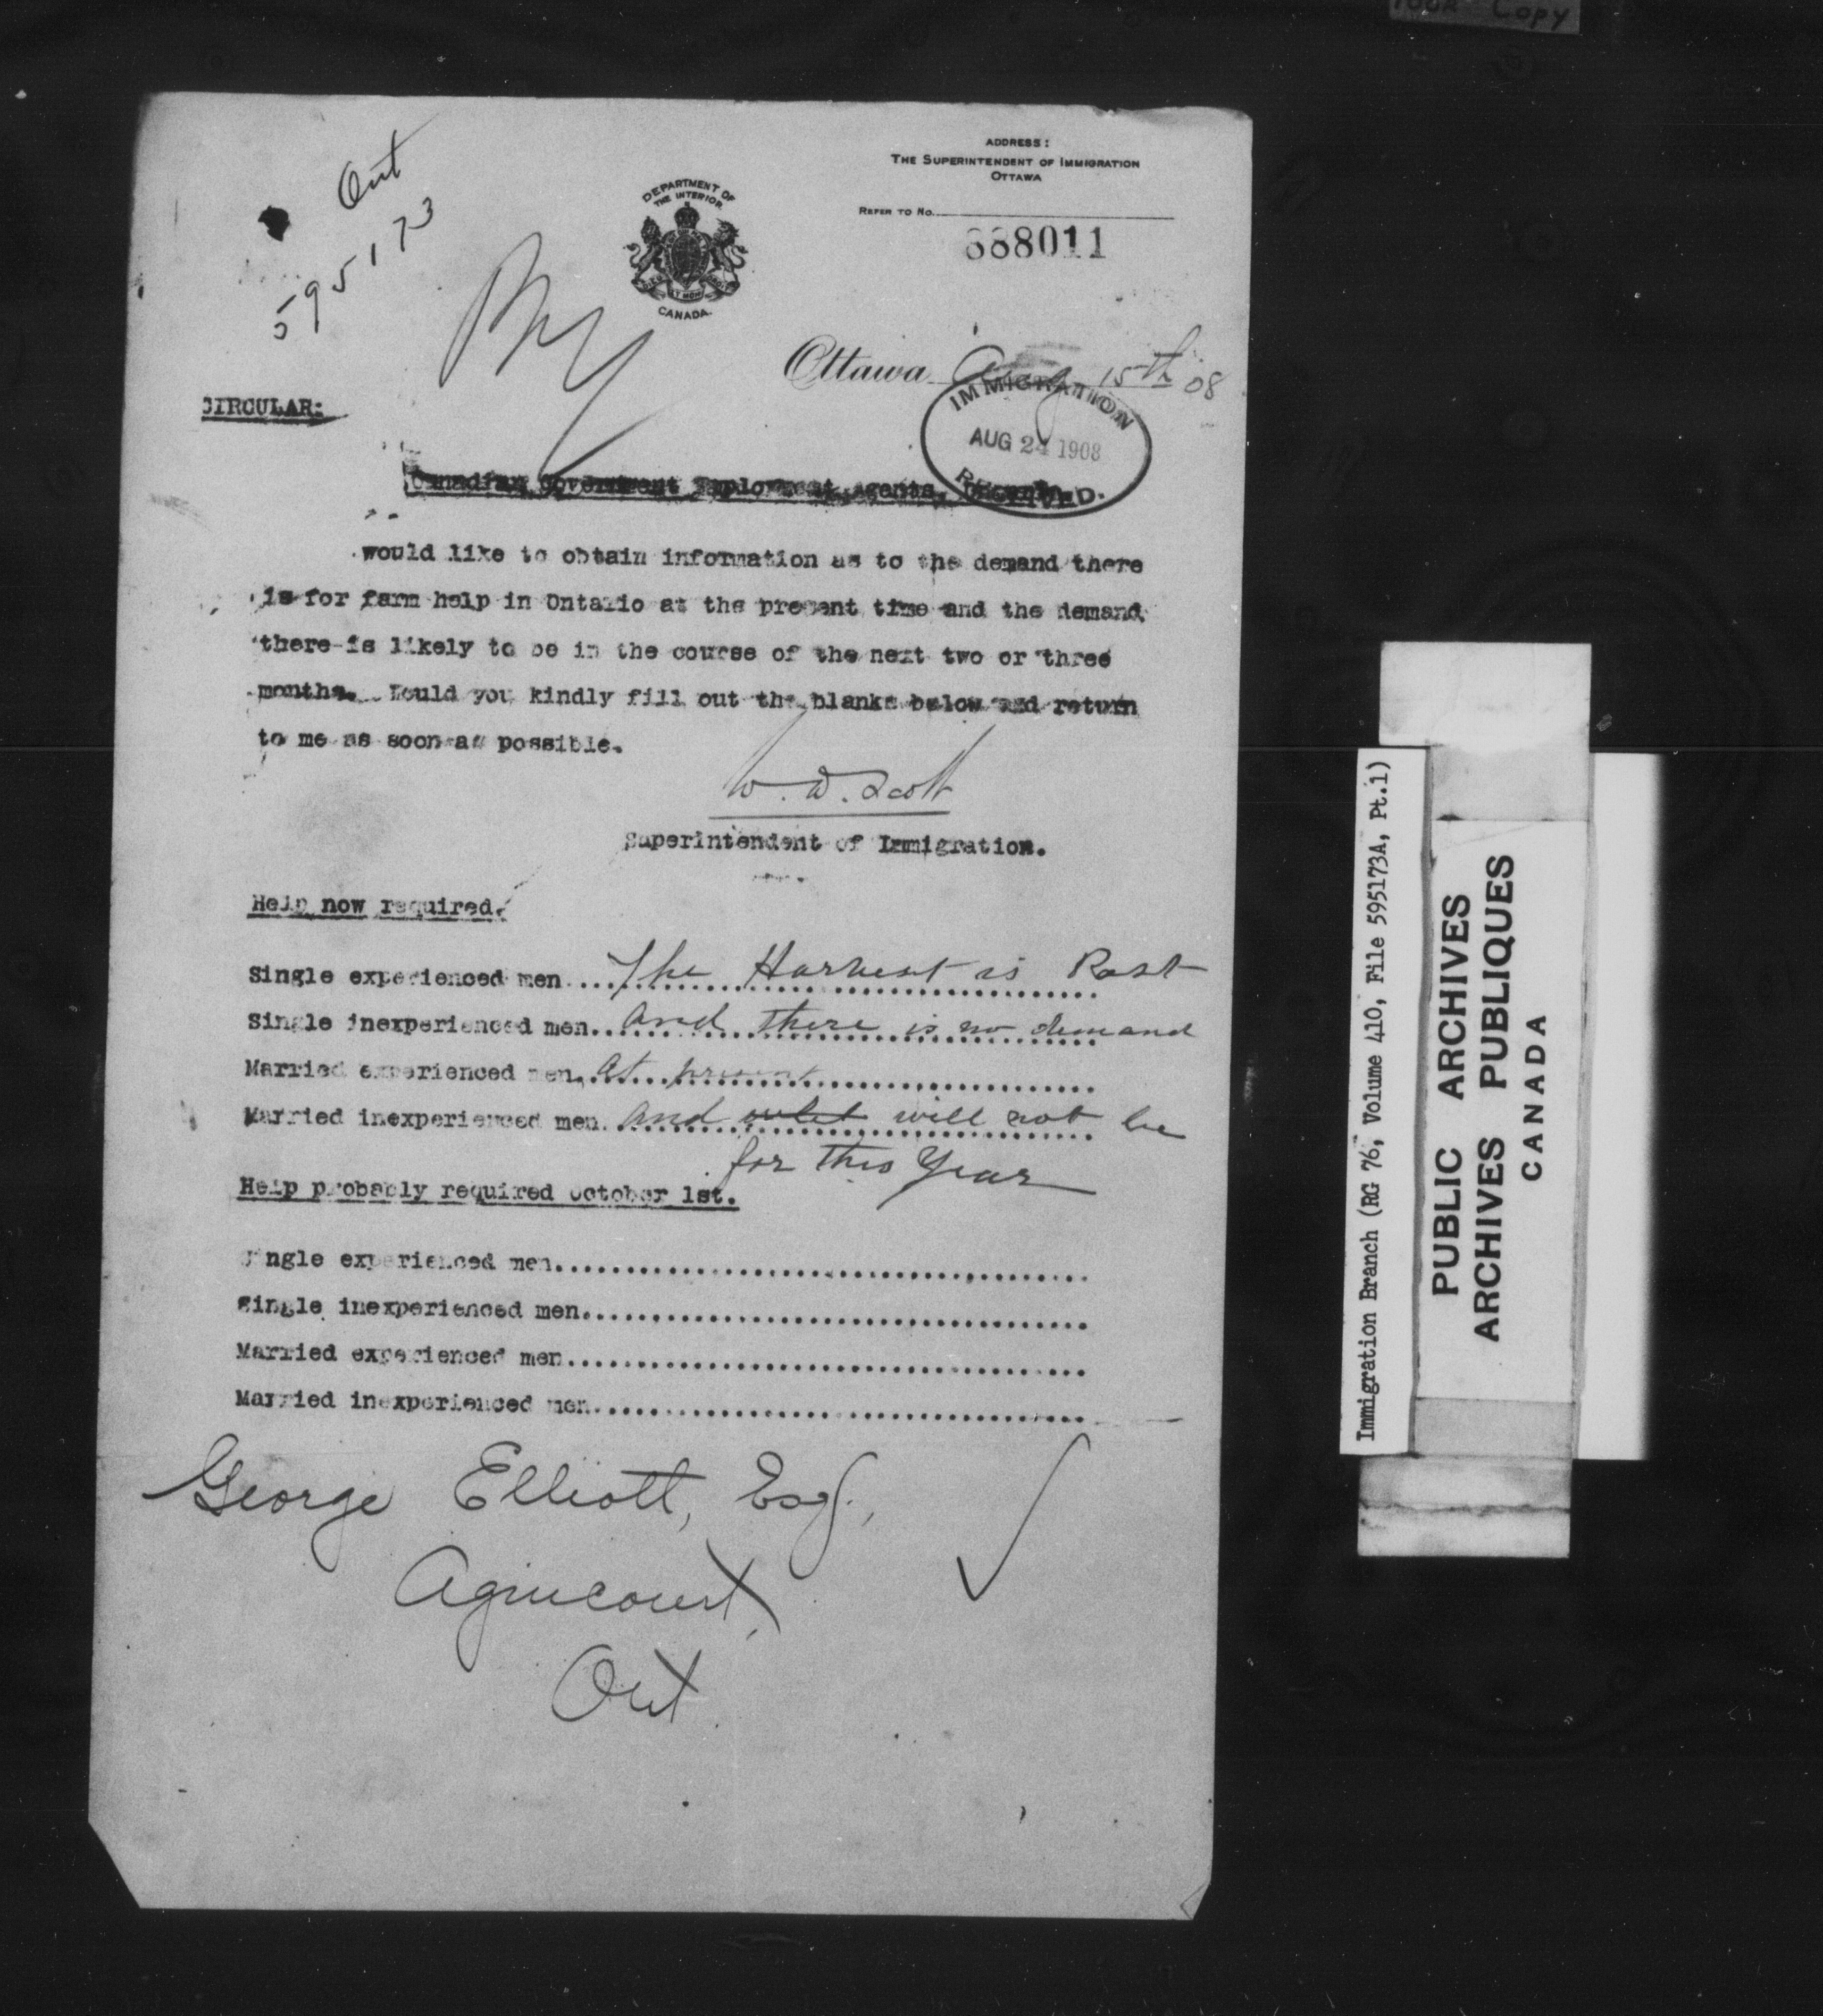 Copy
Ont
595173
ADDRESS:
THE SUPERINTENDENT OF IMMIGRATION
OTTAWA
REFER TO No.
888011
DEPARTMENT OF
THE INTERIOR
CANADA.
Ottawa Aug 15th 08
IMMIGRATION
AUG 24 1908
RECEIVED.
CIRCULAR:
Canadian Government Employment Agents,
would like to obtain information as to the demand there
is for farm help in Ontario at the present time and the demand
there is likely to be in the course of the next two or three
months. Would you kindly fill out the blanks below and return
to me as soon as possible.
W. D. Scott
Superintendent of Immigration.
Help now required.
Single experienced men....The Harvest is Past
Single inexperienced men..and there is no demand
Married experienced men...at present
Married inexperienced men. and will not be
for this Year
Help probably required October 1st.
Single experienced men..........
Single inexperienced men..........
Married experienced men..........
Married inexperienced men..........
George Elliott, Esq.,
Agincourt,
Ont.
Immigration Branch (RG 76, Volume 410, File 595173A, Pt.1)
PUBLIC ARCHIVES
ARCHIVES PUBLIQUES
CANADA